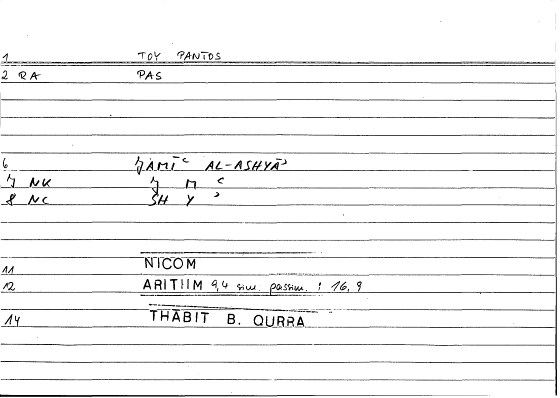 1 TOY PANTOS
2 RA PAS
6 JAMĪʿ AL-ASHYĀʾ
7 NK J M ʿ
8 NC SH Y ʾ
11 NICOM
12 ARITIIM 9,4 sim. passim. : 16,9
14 THĀBIT B. QURRA